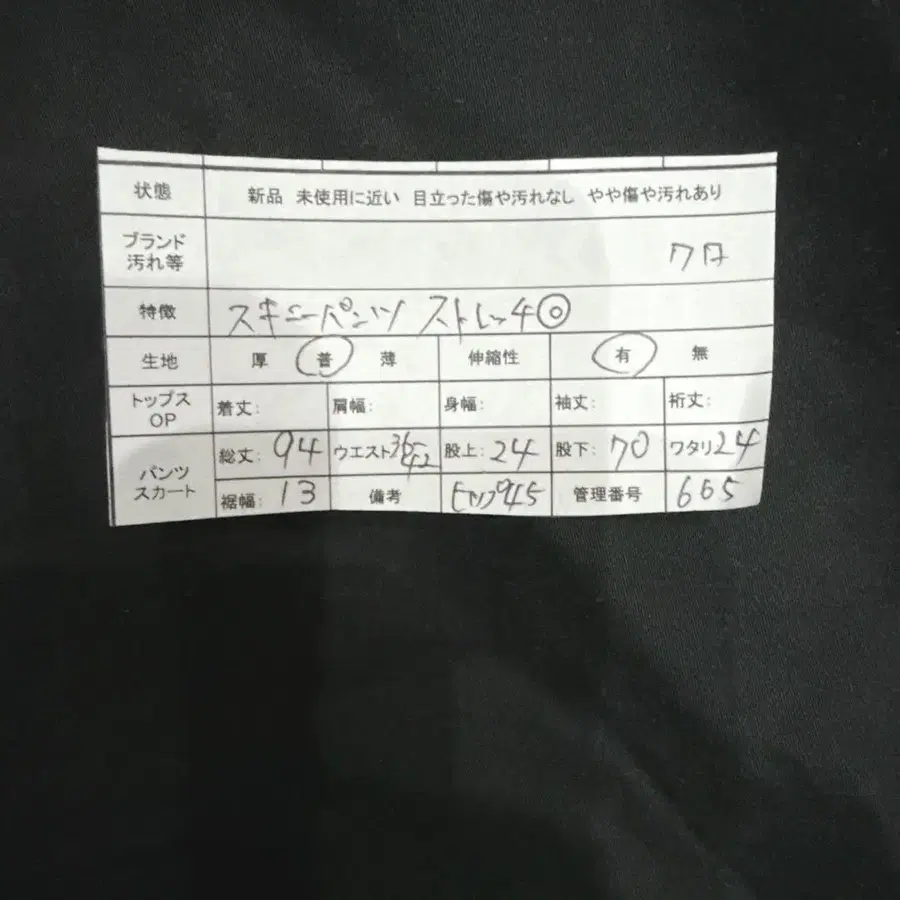 状態 新品 未使用に近い 目立った傷や汚れなし やや傷や汚れあり
ブランド
汚れ等 クロ
特徴 スキニーパンツ ストレッチ◎
生地 厚 普 薄 伸縮性 有 無
トップス
OP 着丈: 肩幅: 身幅: 袖丈: 裄丈:
パンツ
スカート 総丈: 94 ウエスト 36-42 股上: 24 股下: 70 ワタリ 24
裾幅: 13 備考 ヒップ45 管理番号 665